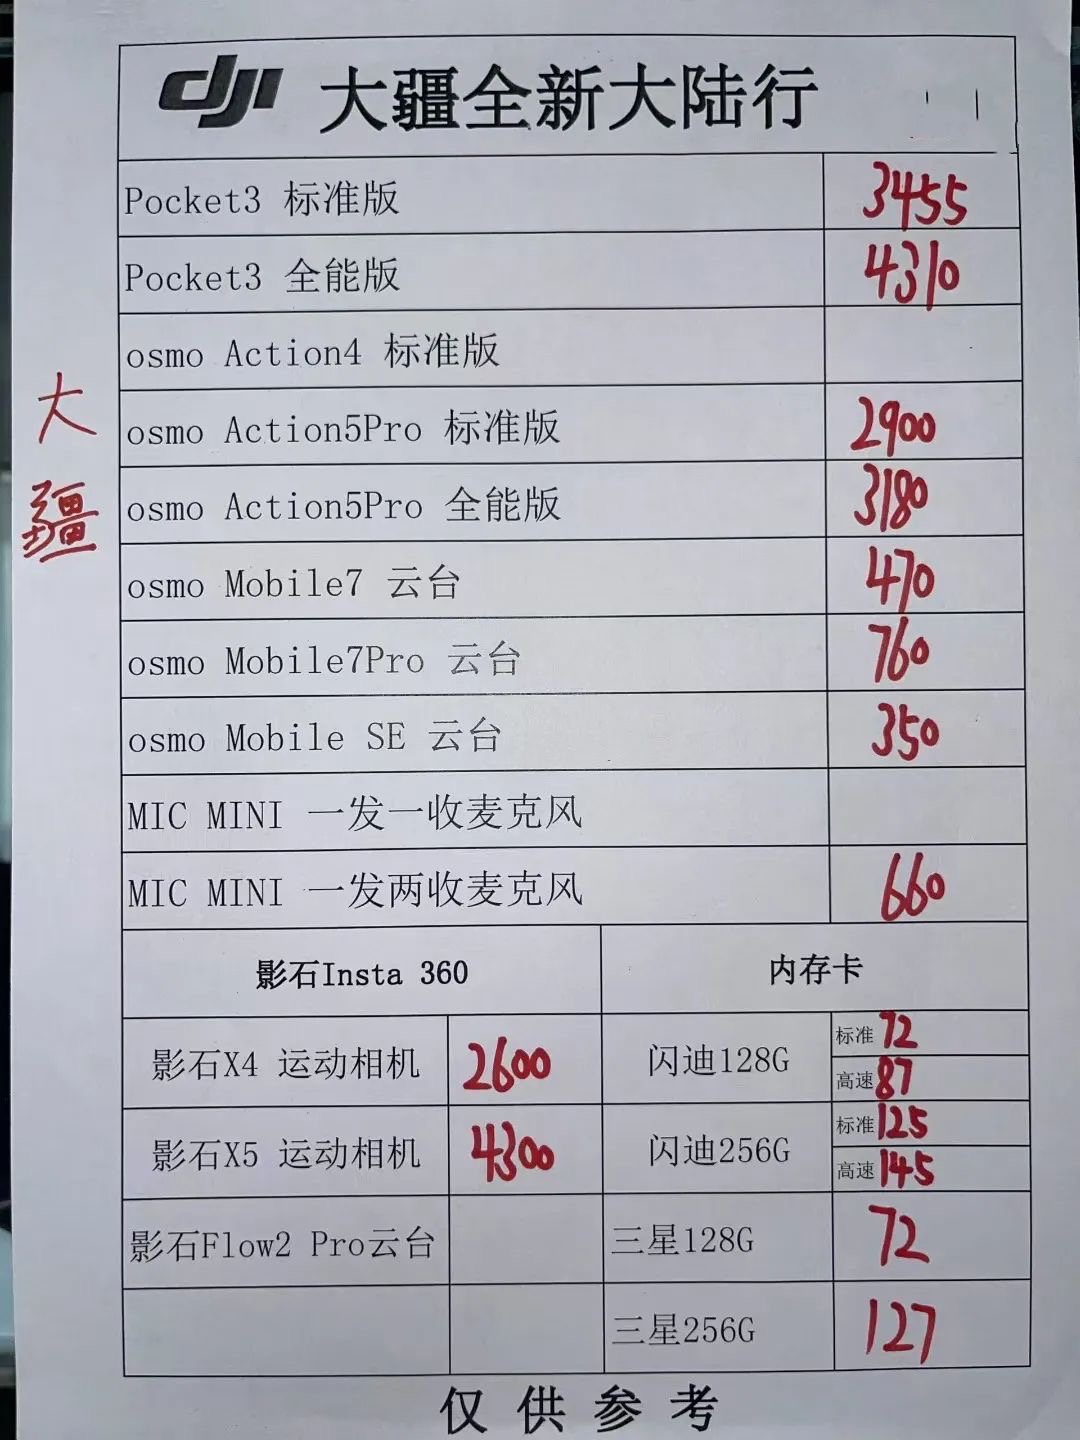 dji 大疆全新大陆行
Pocket3 标准版 3455
Pocket3 全能版 4310
osmo Action4 标准版
osmo Action5Pro 标准版 2900
osmo Action5Pro 全能版 3180
osmo Mobile7 云台 470
osmo Mobile7Pro 云台 760
osmo Mobile SE 云台 350
MIC MINI 一发一收麦克风
MIC MINI 一发两收麦克风 660
大疆
影石Insta 360 内存卡
影石X4 运动相机 2600 闪迪128G 标准 72
高速 87
影石X5 运动相机 4300 闪迪256G 标准 125
高速 145
影石Flow2 Pro云台 三星128G 72
三星256G 127
仅供参考